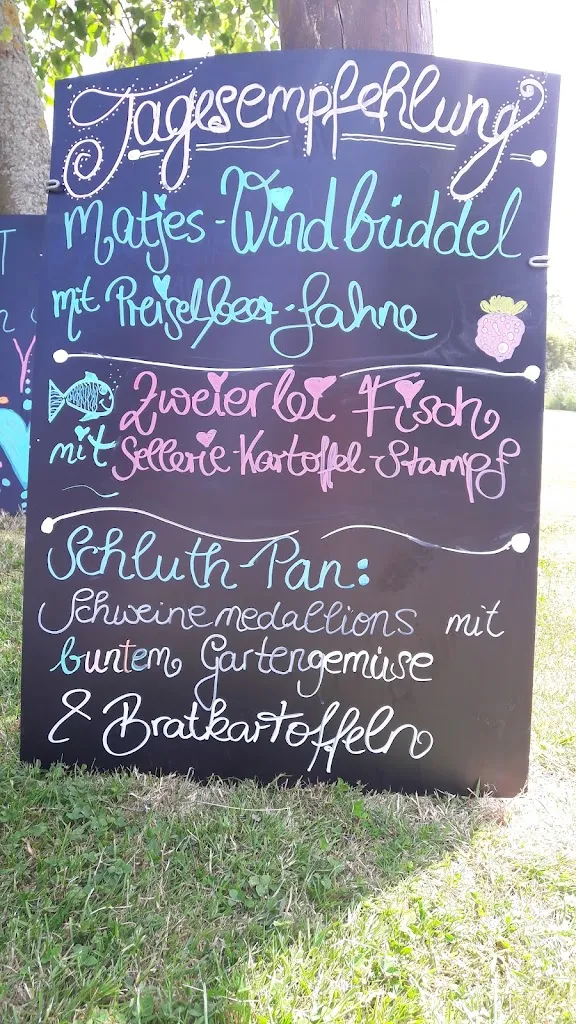 Tagesempfehlung
Matjes-Windbüddel
mit Preiselbeer-Sahne
Zweierlei Fisch
mit Sellerie-Kartoffel-Stampf
Schluth-Pan:
Schweinemedallions mit
buntem Gartengemüse
& Bratkartoffeln